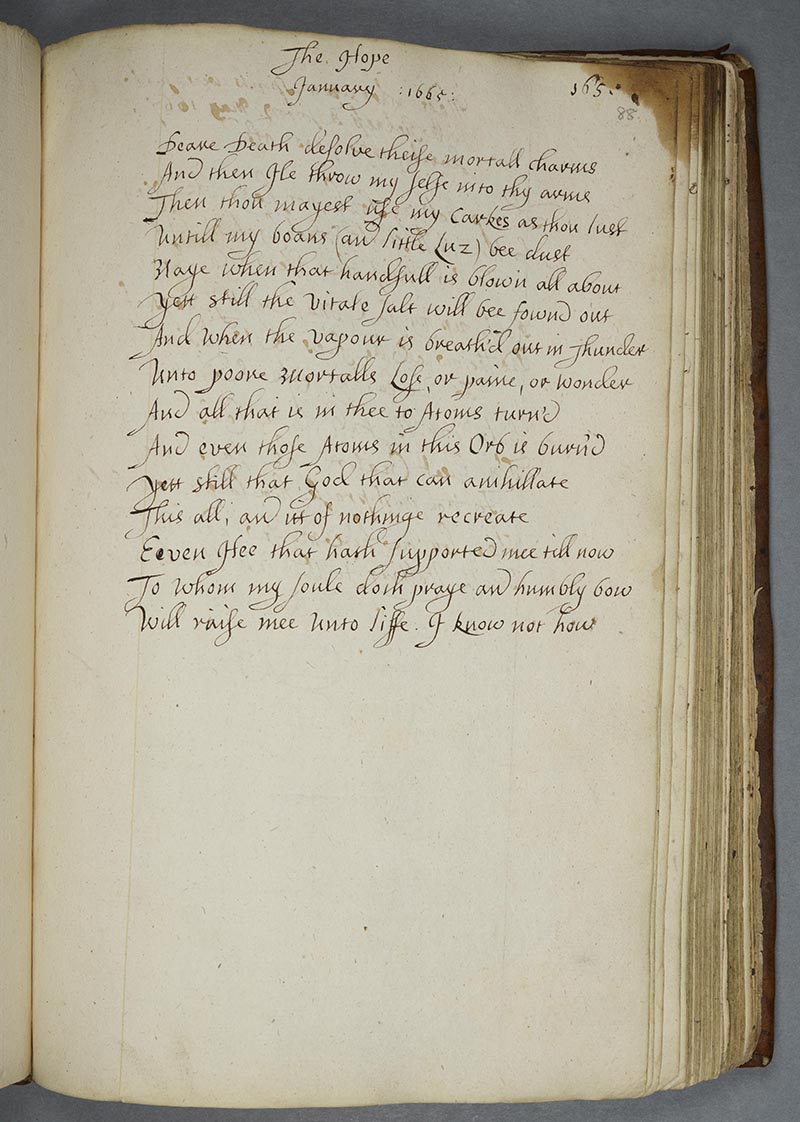 The Hope
January :1665:
165.
88
Deare Death desolve theise mortall charms
And then Ile throw my selfe into thy arms
Then thou mayest use my Carkes as thou lust
Untill my boans (and little Luz) bee dust
Naye when that handfull is blown all about
Yett still the Vitale salt will bee fownd out
And when the vapour is breath'd out in Thunder
Unto poore Mortalls Lose, or paine, or wonder
And all that is in thee to Atoms turn'd
And even those Atoms in this Orb is burn'd
Yett still that God that can anihillate
This all, and itt of nothinge recreate
Eeven Hee that hath supported mee till now
To whom my soule doth praye and humbly bow
Will raise mee unto liffe. I know not how